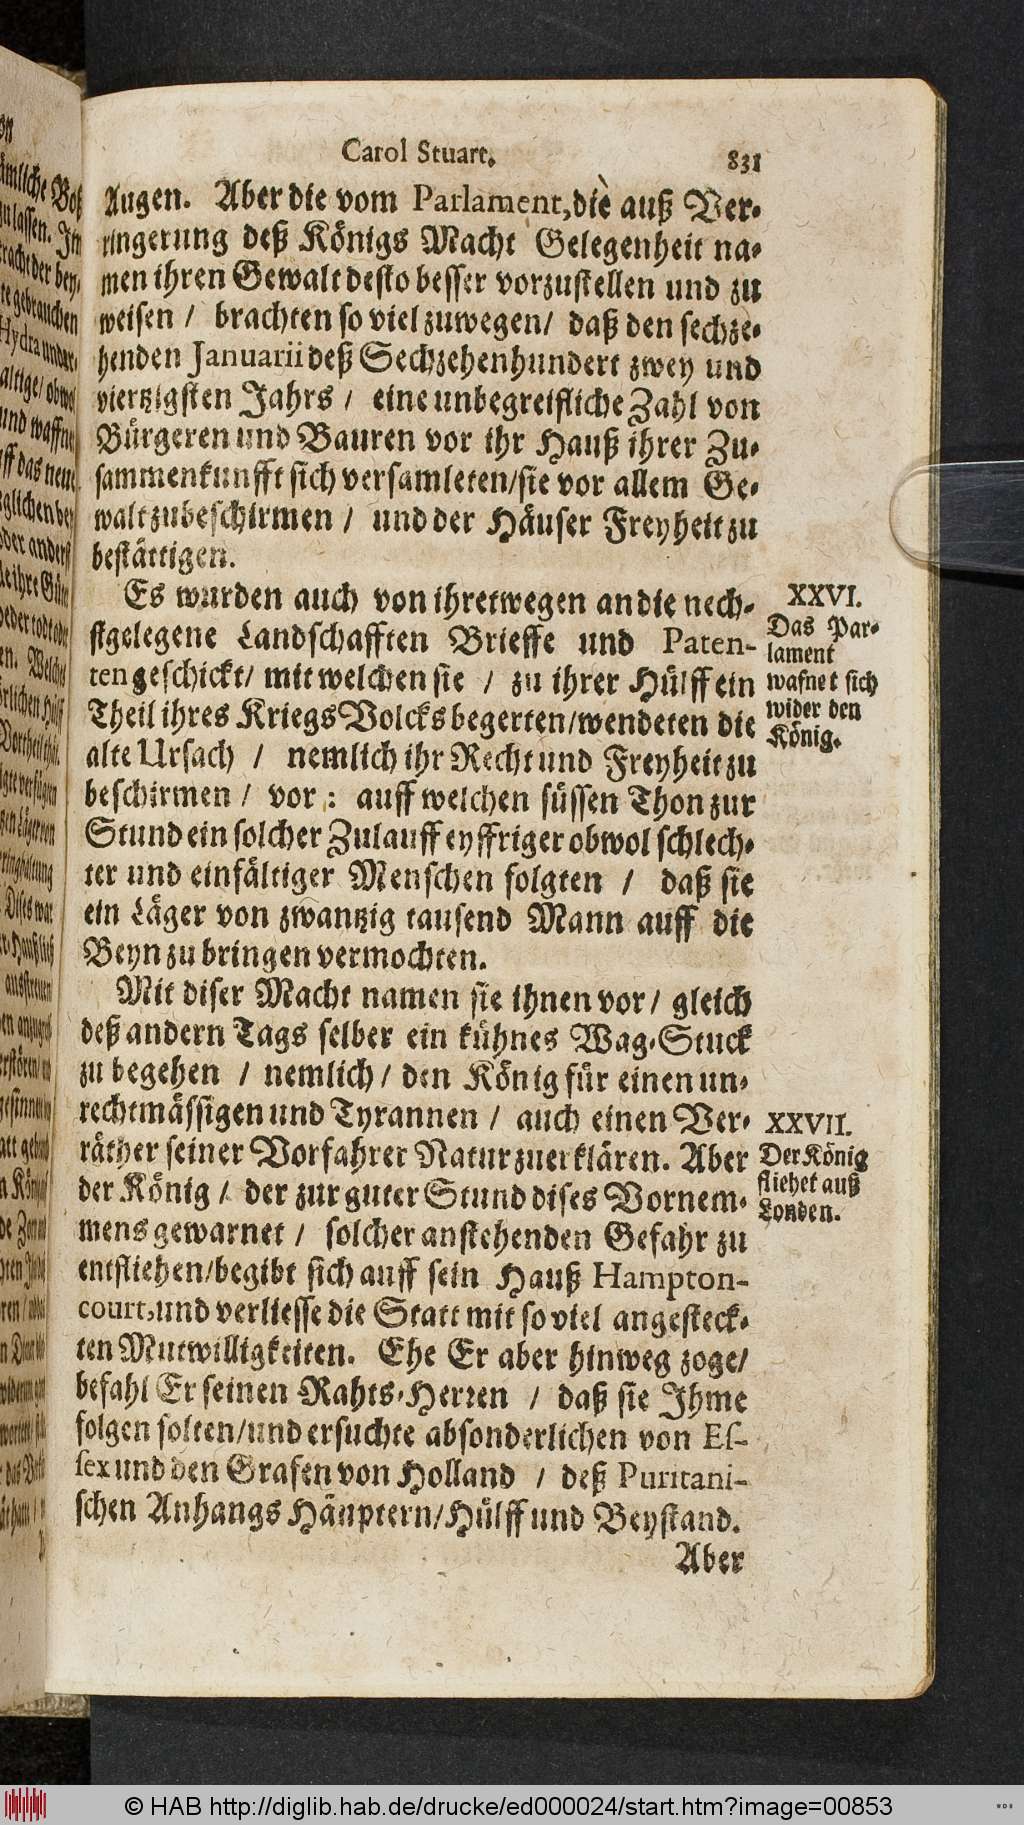 Carol Stuart. 831
Augen. Aber die vom Parlament, die auß Ver-
ringerung deß Königs Macht Gelegenheit na-
men ihren Gewalt desto besser vorzustellen und zu
weisen / brachten so viel zuwegen / daß den sechze-
henden Januarii deß Sechzehenhundert zwey und
viertzigsten Jahrs / eine unbegreifliche Zahl von
Bürgeren und Bauren vor ihr Hauß ihrer Zu-
sammenkunfft sich versamleten / sie vor allem Ge-
walt zubeschirmen / und der Häuser Freyheit zu
bestättigen.
Es wurden auch von ihretwegen an die nech-
stgelegene Landschafften Brieffe und Paten-
ten geschickt / mit welchen sie / zu ihrer Hülff ein
Theil ihres Kriegs Volcks begerten / wendeten die
alte Ursach / nemlich ihr Recht und Freyheit zu
beschirmen / vor : auff welchen süssen Thon zur
Stund ein solcher Zulauff eyffriger obwol schlech-
ter und einfältiger Menschen folgten / daß sie
ein Läger von zwantzig tausend Mann auff die
Beyn zu bringen vermochten.
XXVI.
Das Par-
lament
wafnet sich
wider den
König.
Mit diser Macht namen sie ihnen vor / gleich
deß andern Tags selber ein kühnes Wag-Stuck
zu begehen / nemlich / den König für einen un-
rechtmässigen und Tyrannen / auch einen Ver-
räther seiner Vorfahrer Natur zuerklären. Aber
der König / der zur guter Stund dises Vornem-
mens gewarnet / solcher anstehenden Gefahr zu
entfliehen / begibt sich auff sein Hauß Hampton-
court, und verliesse die Statt mit so viel angesteck-
ten Mutwilligkeiten. Ehe Er aber hinweg zoge /
befahl Er seinen Rahts-Herren / daß sie Ihme
folgen solten / und ersuchte absonderlichen von Es-
sex und den Grafen von Holland / deß Puritani-
schen Anhangs Häuptern / Hülff und Beystand.
XXVII.
Der König
fliehet auß
Londen.
Aber
© HAB http://diglib.hab.de/drucke/ed000024/start.htm?image=00853